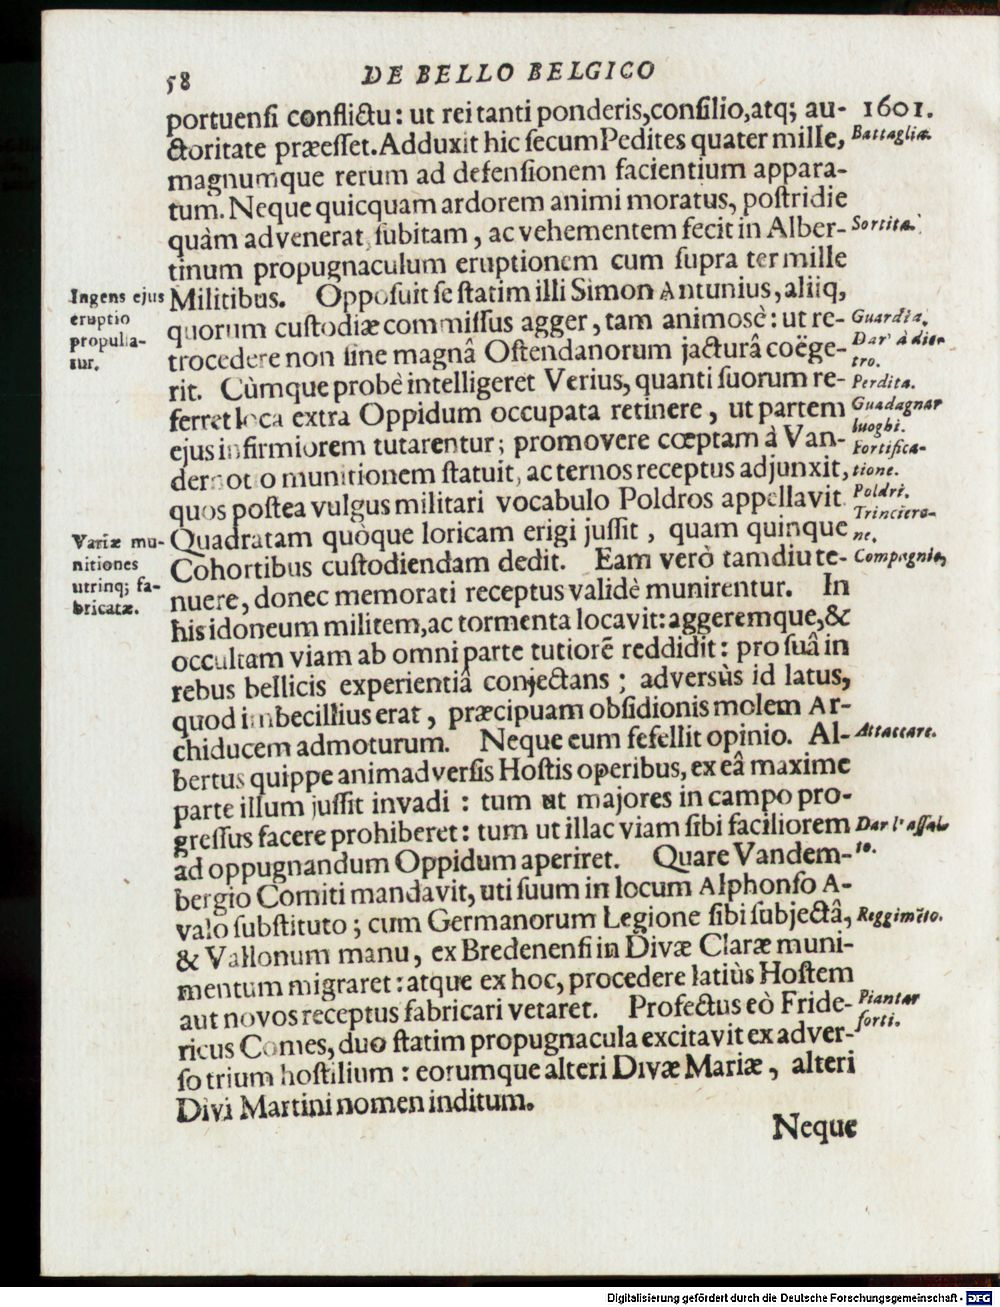 58 DE BELLO BELGICO
portuenſi conflictu: ut rei tanti ponderis, conſilio, atq; au- 1601.
ctoritate præeſſet. Adduxit hic ſecum Pedites quater mille, Battaglia.
magnumque rerum ad defenſionem facientium appara-
tum. Neque quicquam ardorem animi moratus, poſtridie
quàm advenerat, ſubitam, ac vehementem fecit in Alber- Sortita.
tinum propugnaculum eruptionem cum ſupra ter mille
Ingens ejus Militibus. Oppoſuit ſe ſtatim illi Simon Antunius, aliiq,
eruptio quorum cuſtodiæ commiſſus agger, tam animosè: ut re- Guardia.
propulſa- trocedere non ſine magnâ Oſtendanorum jacturâ coëge- Dar' à die-
tur. rit. Cùmque probè intelligeret Verius, quanti ſuorum re- tro. Perdita.
ferret loca extra Oppidum occupata retinere, ut partem Guadagnar
ejus infirmiorem tutarentur; promovere cœptam à Van- luoghi. Fortifica-
dernoto munitionem ſtatuit, ac ternos receptus adjunxit, tione.
quos poſtea vulgus militari vocabulo Poldros appellavit. Poldri.
Variæ mu- Quadratam quòque loricam erigi juſſit, quam quinque Trinciero- ne.
nitiones Cohortibus cuſtodiendam dedit. Eam verò tamdiu te- Compagnie,
utrinq; fa- nuere, donec memorati receptus validè munirentur. In
bricatæ. his idoneum militem, ac tormenta locavit: aggeremque, &
occultam viam ab omni parte tutiorē reddidit: pro ſuâ in
rebus bellicis experientiâ conjectans; adversùs id latus,
quod imbecillius erat, præcipuam obſidionis molem Ar-
chiducem admoturum. Neque eum fefellit opinio. Al- Attaccare.
bertus quippe animadverſis Hoſtis operibus, ex eâ maxime
parte illum juſſit invadi: tum ut majores in campo pro-
greſſus facere prohiberet: tum ut illac viam ſibi faciliorem Dar l'aſſal-
ad oppugnandum Oppidum aperiret. Quare Vandem- to.
bergio Comiti mandavit, uti ſuum in locum Alphonſo A-
valo ſubſtituto; cum Germanorum Legione ſibi ſubjectâ, Reggimēto.
& Vallonum manu, ex Bredenenſi in Divæ Claræ muni-
mentum migraret: atque ex hoc, procedere latiùs Hoſtem
aut novos receptus fabricari vetaret. Profectus eò Fride- Piantar
ricus Comes, duo ſtatim propugnacula excitavit ex adver- forti.
ſo trium hoſtilium: eorumque alteri Divæ Mariæ, alteri
Divi Martini nomen inditum.
Neque
Digitalisierung gefördert durch die Deutsche Forschungsgemeinschaft - DFG